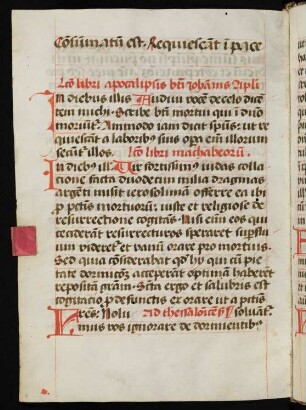 Cōsumatū est. Requiescāt ī pace
Lc̄o libri apocalipsis btī Johānis Apli
In diebus illis Audiui vocē de celo dicē
tem michi. Scribe btī mortui qui ī dn̄o
moriūt᷑. Ammodo iam dicit spūs. ut re
quiescāt a laborib᷒ suis opa em̄ illorum
secūt᷑ illos. Lc̄o libri machabeorū.
In dieb᷒ ill̄. Vir fortissim᷒ iudas colla
cione facta duodecim milia dragmas
argēti misit ierosolimā offerre ea ibi
p petīs mortuorū. iuste et religiose de
resurrectione cogitās. Nisi eim̄ eos qui
ceciderāt resurrecturos speraret supflu
um videret᷑ et vanū orare pro mortuis.
Sed quia cōsiderabat qd̄ hy qui cū pie
tate dormicōȝ acceperāt optimā haberēt
repositā grām. Sct̄a ergo et salubris est
cogitacio p defunctis exorare ut a pctīs
soluāt᷑. Ad thessalonicēs
Fres. Nolu
mus vos ignorare de dormientib᷒